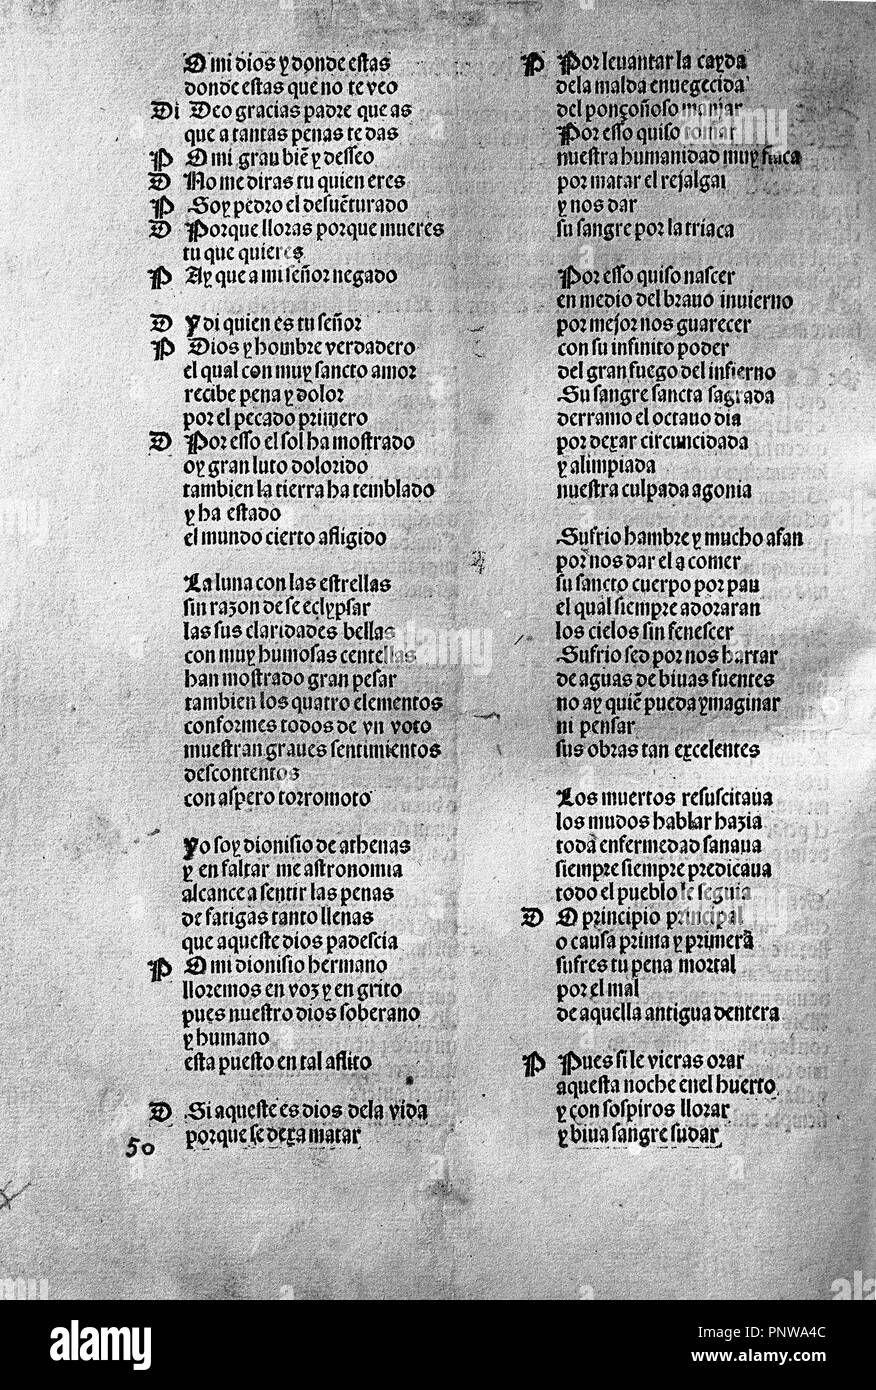 O mi dios y donde estas
donde estas que no te veo
Di Deo gracias padre que as
que a tantas penas te das
P O mi gran biẽ y desseo
D No me diras tu quien eres
P Soy pedro el desuẽturado
D Porque lloras porque mueres
tu que quieres
P Ay que a mi señor negado
D Y di quien es tu señor
P Dios y hombre verdadero
el qual con muy sancto amor
recibe pena y dolor
por el pecado primero
D Por esso el sol ha mostrado
oy gran luto dolorido
tambien la tierra ha temblado
y ha estado
el mundo cierto afligido
La luna con las estrellas
sin razon de se eclypsar
las sus claridades bellas
con muy humosas centellas
han mostrado gran pesar
tambien los quatro elementos
conformes todos de vn voto
muestran graues sentimientos
descontentos
con aspero torromoto
Yo soy dionisio de athenas
y en faltar me astronomia
alcance a sentir las penas
de fatigas tanto llenas
que aqueste dios padescia
P O mi dionisio hermano
lloremos en voz y en grito
pues nuestro dios soberano
y humano
esta puesto en tal aflito
D Si aqueste es dios dela vida
porque se dexa matar
50
P Por leuantar la cayda
dela malda enuegecida
del ponçoñoso manjar
Por esso quiso tomar
nuestra humanidad muy flaca
por matar el rejalgar
y nos dar
su sangre por la triaca
Por esso quiso nascer
en medio del brauo inuierno
por mejor nos guarecer
con su infinito poder
del gran fuego del infierno
Su sangre sancta sagrada
derramo el octauo dia
por dexar circuncidada
y alimpiada
nuestra culpada agonia
Sufrio hambre y mucho afan
por nos dar el a comer
su sancto cuerpo por pan
el qual siempre adoraran
los cielos sin fenescer
Sufrio sed por nos hartar
de aguas de biuas fuentes
no ay quiẽ pueda ymaginar
ni pensar
sus obras tan excelentes
Los muertos resuscitaua
los mudos hablar hazia
toda enfermedad sanaua
siempre siempre predicaua
todo el pueblo le seguia
D O principio principal
o causa prima y primera
sufres tu pena mortal
por el mal
de aquella antigua dentera
P Pues si le vieras orar
aquesta noche enel huerto
y con sospiros llorar
y biua sangre sudar
alamy
Image ID: PNWA4C
www.alamy.com